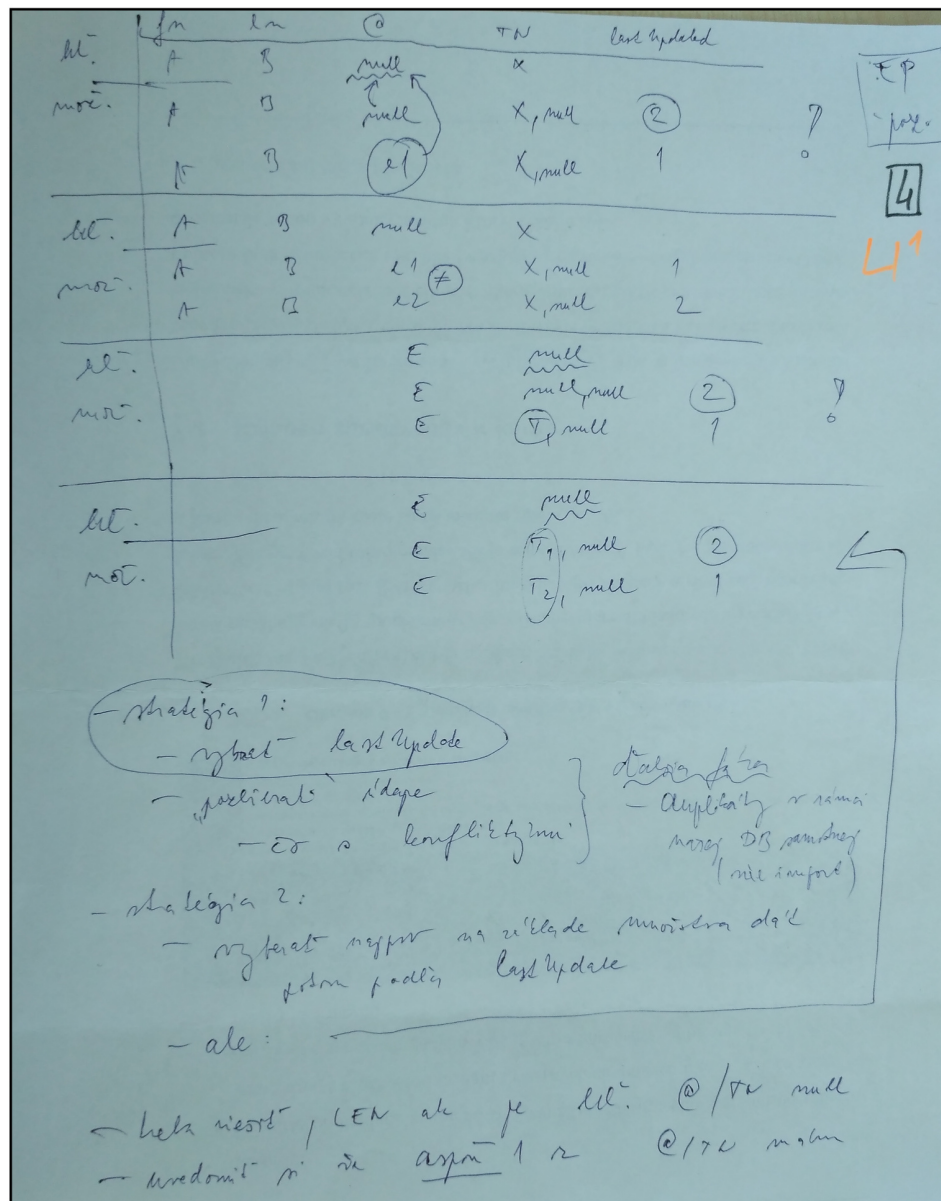 fn ln @ TN last updated
A B null x
A B null x, null 2 !
A B e1 x, null 1
EP
4
4¹
A B null x
A B e1 ≠ x, null 1
A B e2 x, null 2
E null
E null, null 2 !
E T, null 1
E null
E T1, null 2
E T2, null 1
- stratégia 1:
- vybrať last Update
- „pozbierať údaje
- čo s konfliktnými
ďalšia fáza
- duplicity v rámci
našej DB samotnej
(nie import)
- stratégia 2:
- vyberať najprv na základe množstva dát
potom podľa last Update
- ale:
- treba riešiť, LEN ak je @/TN null
- uvedomiť si že aspoň 1 z @/TN máme